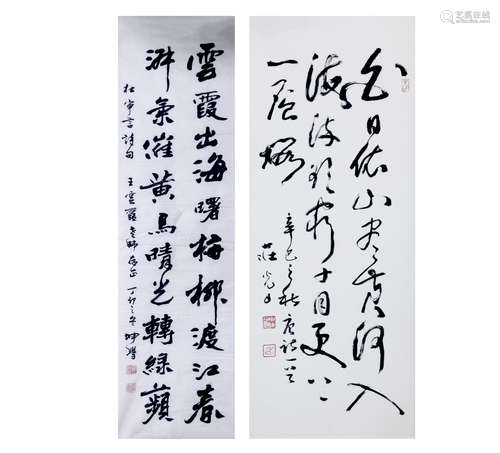 雲霞出海曙梅柳渡江春
淑氣催黃鳥晴光轉綠蘋
杜審言詩句 王雲龍老師存正 丁卯之冬 坤
白日依山尽黄河入
海流欲窮千目更上
一层楼
辛巳之秋唐詩一首
莊